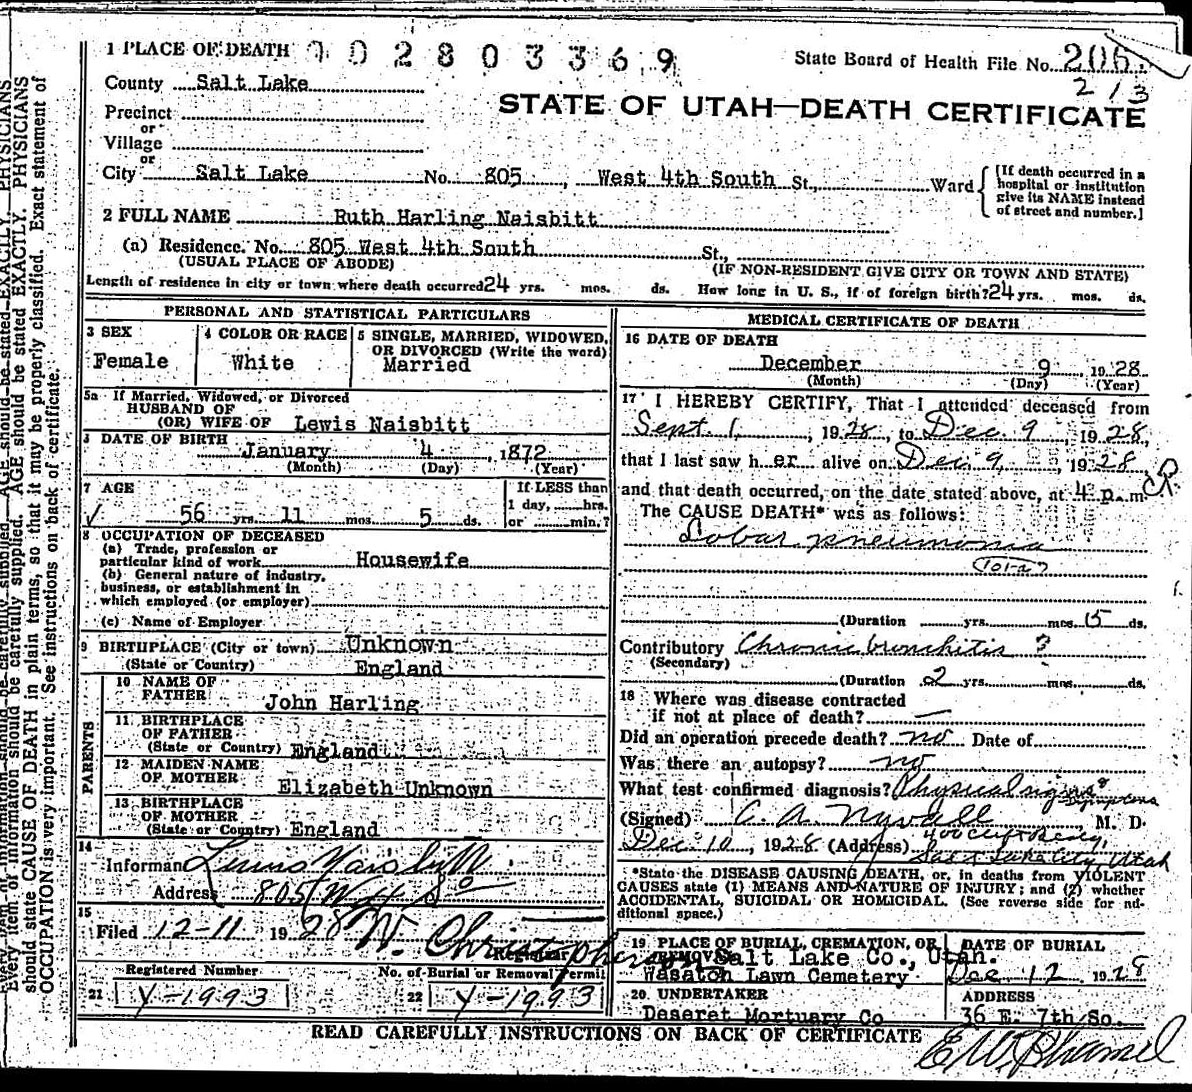 1 PLACE OF DEATH 00280336 9
State Board of Health File No. 206
213
County Salt Lake
STATE OF UTAH—DEATH CERTIFICATE
Precinct
or
Village
or
City Salt Lake No. 805, West 4th South St., Ward
{If death occurred in a hospital or institution give its NAME instead of street and number.}
2 FULL NAME Ruth Harling Naisbitt
(a) Residence. No. 805 West 4th South St.,
(USUAL PLACE OF ABODE) (IF NON-RESIDENT GIVE CITY OR TOWN AND STATE)
Length of residence in city or town where death occurred 24 yrs. mos. ds. How long in U. S., if of foreign birth? 24 yrs. mos. ds.
PERSONAL AND STATISTICAL PARTICULARS
3 SEX 4 COLOR OR RACE 5 SINGLE, MARRIED, WIDOWED,
OR DIVORCED (Write the word)
Female White Married
5a If Married, Widowed, or Divorced
HUSBAND OF
(OR) WIFE OF Lewis Naisbitt
DATE OF BIRTH
January 4, 1872
(Month) (Day) (Year)
7 AGE If LESS than
1 day, hrs.
√ 56 yrs. 11 mos. 5 ds. or min.?
8 OCCUPATION OF DECEASED
(a) Trade, profession or
particular kind of work Housewife
(b) General nature of industry,
business, or establishment in
which employed (or employer)
(c) Name of Employer
9 BIRTHPLACE (City or town) Unknown
(State or Country) England
PARENTS
10 NAME OF
FATHER John Harling
11 BIRTHPLACE
OF FATHER
(State or Country) England
12 MAIDEN NAME
OF MOTHER Elizabeth Unknown
13 BIRTHPLACE
OF MOTHER
(State or Country) England
14
Informant Lewis Naisbitt
Address 805 W 4 So
15
Filed 12-11 1928 W. Christopherson
Registrar
Registered Number No. of Burial or Removal Permit
21 Y-1993 22 Y-1993
MEDICAL CERTIFICATE OF DEATH
16 DATE OF DEATH
December 9, 1928
(Month) (Day) (Year)
17 I HEREBY CERTIFY, That I attended deceased from
Sept. 1, 1928, to Dec. 9, 1928,
that I last saw her alive on Dec 9, 1928
and that death occurred, on the date stated above, at 4 p.m.
The CAUSE DEATH* was as follows:
Lobar pneumonia
(Duration yrs. mos. 5 ds.
Contributory Chronic bronchitis
(Secondary)
(Duration 2 yrs. mos. ds.
18 Where was disease contracted
if not at place of death? —
Did an operation precede death? no Date of
Was there an autopsy? no
What test confirmed diagnosis? Physical signs & symptoms
(Signed) C. A. M. D.
Dec. 10, 1928 (Address)
Salt Lake City, Utah
*State the DISEASE CAUSING DEATH, or, in deaths from VIOLENT
CAUSES state (1) MEANS AND NATURE OF INJURY; and (2) whether
ACCIDENTAL, SUICIDAL OR HOMICIDAL. (See reverse side for additional space.)
19 PLACE OF BURIAL, CREMATION, OR REMOVAL DATE OF BURIAL
Salt Lake Co., Utah.
Wasatch Lawn Cemetery Dec 12 1928
20 UNDERTAKER ADDRESS
Deseret Mortuary Co 36 E. 7th So.
READ CAREFULLY INSTRUCTIONS ON BACK OF CERTIFICATE
Every item of information should be carefully supplied. AGE should be stated EXACTLY. PHYSICIANS
should state CAUSE OF DEATH in plain terms, so that it may be properly classified. Exact statement of
OCCUPATION is very important. See instructions on back of certificate.